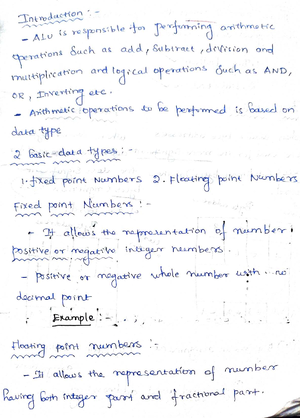 Introduction :-
- ALU is responsible for performing arithmetic
operations such as add, subtract, division and
multiplication and logical operations such as AND,
OR, Inverting etc.
- Arithmetic operations to be performed is based on
data type
2 basic data types :-
1. fixed point Numbers 2. Floating point Numbers
Fixed point Numbers :-
- It allows the representation of number
positive or negative integer numbers.
- positive or negative whole number with no
decimal point
Example :-
Floating point numbers :-
- It allows the representation of number
having both integer part and fractional part.